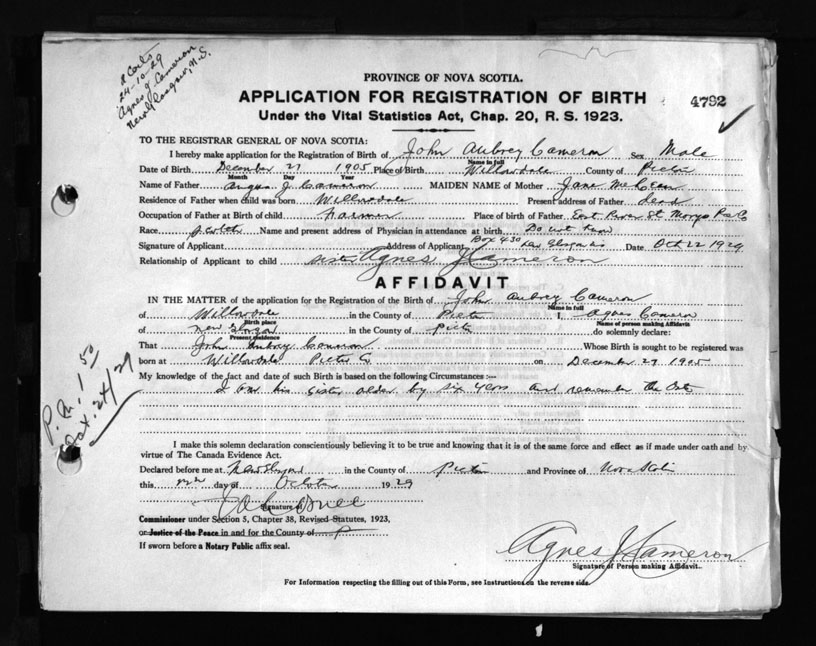 24-10-29
Agnes J Cameron
New Glasgow, N.S.
PROVINCE OF NOVA SCOTIA.
APPLICATION FOR REGISTRATION OF BIRTH
4792
Under the Vital Statistics Act, Chap. 20, R. S. 1923.
TO THE REGISTRAR GENERAL OF NOVA SCOTIA:
I hereby make application for the Registration of Birth of John Aubrey Cameron Sex Male
Name in full
Date of Birth December 27 1905 Place of Birth Willowdale County of Pictou
Month Day Year
Name of Father Angus J. Cameron MAIDEN NAME of Mother Jane McLean
Residence of Father when child was born Willowdale Present address of Father dead
Occupation of Father at Birth of child Farmer Place of birth of Father East River St Marys Pic Co
Race Scotch Name and present address of Physician in attendance at birth Do not know
Signature of Applicant Address of Applicant Box 430 New Glasgow NS Date Oct 22 1929
Relationship of Applicant to child sister Agnes J Cameron
AFFIDAVIT
IN THE MATTER of the application for the Registration of the Birth of John Aubrey Cameron
Name in full
of Willowdale in the County of Pictou I, Agnes Cameron
Birth place Name of person making Affidavit
of New Glasgow in the County of Pictou do solemnly declare:
Present residence
That John Aubrey Cameron Whose Birth is sought to be registered was
born at Willowdale Pictou Co on December 27 1905
My knowledge of the fact and date of such Birth is based on the following Circumstances :—
I am his sister older by six years and remember the date
P.N. 1.50
Oct. 24/29
I make this solemn declaration conscientiously believing it to be true and knowing that it is of the same force and effect as if made under oath and by
virtue of The Canada Evidence Act.
Declared before me at New Glasgow in the County of Pictou and Province of Nova Scotia
this 22nd day of October 1929
Signature of
Commissioner under Section 5, Chapter 38, Revised Statutes, 1923,
or Justice of the Peace in and for the County of P
If sworn before a Notary Public affix seal.
Agnes J Cameron
Signature of Person making Affidavit.
For Information respecting the filling out of this Form, see Instructions on the reverse side.